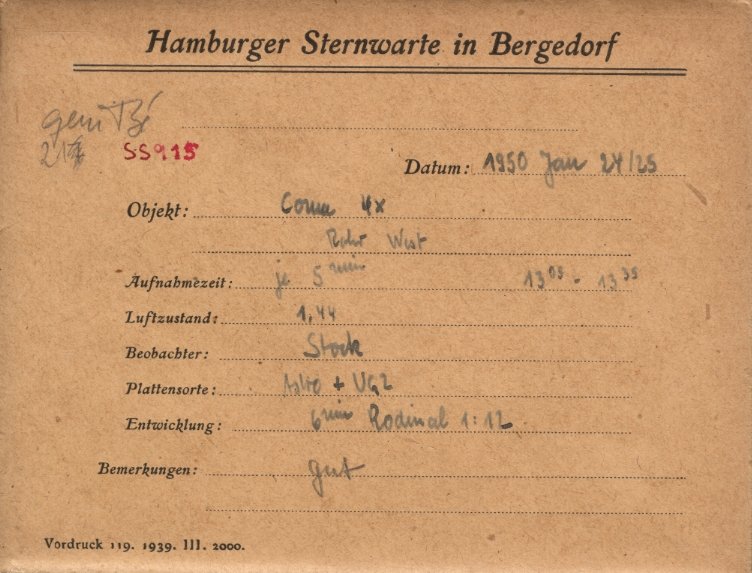 Hamburger Sternwarte in Bergedorf
SS915
Datum: 1950 Jan 24/25
Objekt: Coma 4x
Rohr West
Aufnahmezeit: je 5 min 13 05 - 13 35
Luftzustand: 1,44
Beobachter: Stock
Plattensorte: Astro + UG2
Entwicklung: 6 min Rodinal 1:12
Bemerkungen: gut
Vordruck 119. 1939. III. 2000.